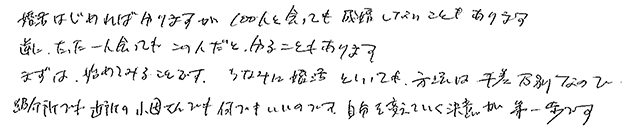 婚活はじめれば分りますが100人と会っても成婚しないこともあります
逆に、たった一人会っても この人だと、分ることもあります
まずは、始めてみることです。ちなみに婚活といっても、方法は千差万別なので
紹介所でも近所の小母さんでも何でもいいのです、自分を変えていく決意が第一歩です